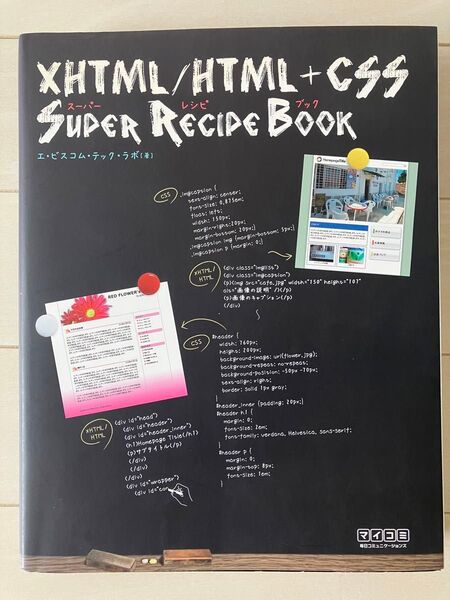 XHTML/HTML+CSS
スーパー レシピ ブック
SUPER RECIPE BOOK
エ・ビスコム・テック・ラボ[著]
CSS
.imgcaption {
text-align: center;
font-size: 0.875em;
float: left;
width: 150px;
margin-right: 20px;
margin-bottom: 20px;}
.imgcaption img {margin-bottom: 5px;}
.imgcaption p {margin: 0;}
XHTML/
HTML
<div class="imglist">
<div class="imgcaption">
<p><img src="cafe.jpg" width="150" height="107"
alt="画像の説明" /></p>
<p>画像のキャプション</p>
</div>
RED FLOWER'S
CSS
#header {
width: 760px;
height: 200px;
background-image: url(flower.jpg);
background-repeat: no-repeat;
background-position: -50px -70px;
text-align: right;
border: solid 1px gray;
}
#header_inner {padding: 20px;}
#header h1 {
margin: 0;
font-size: 2em;
font-family: verdana, Helvetica, sans-serif;
}
#header p {
margin: 0;
margin-top: 8px;
font-size: 1em;
}
XHTML/
HTML
<div id="head">
<div id="header">
<div id="header_inner">
<h1>Homepage Title</h1>
<p>サブタイトル</p>
</div>
</div>
</div>
<div id="wrapper">
<div id="con
マイコミ
毎日コミュニケーションズ